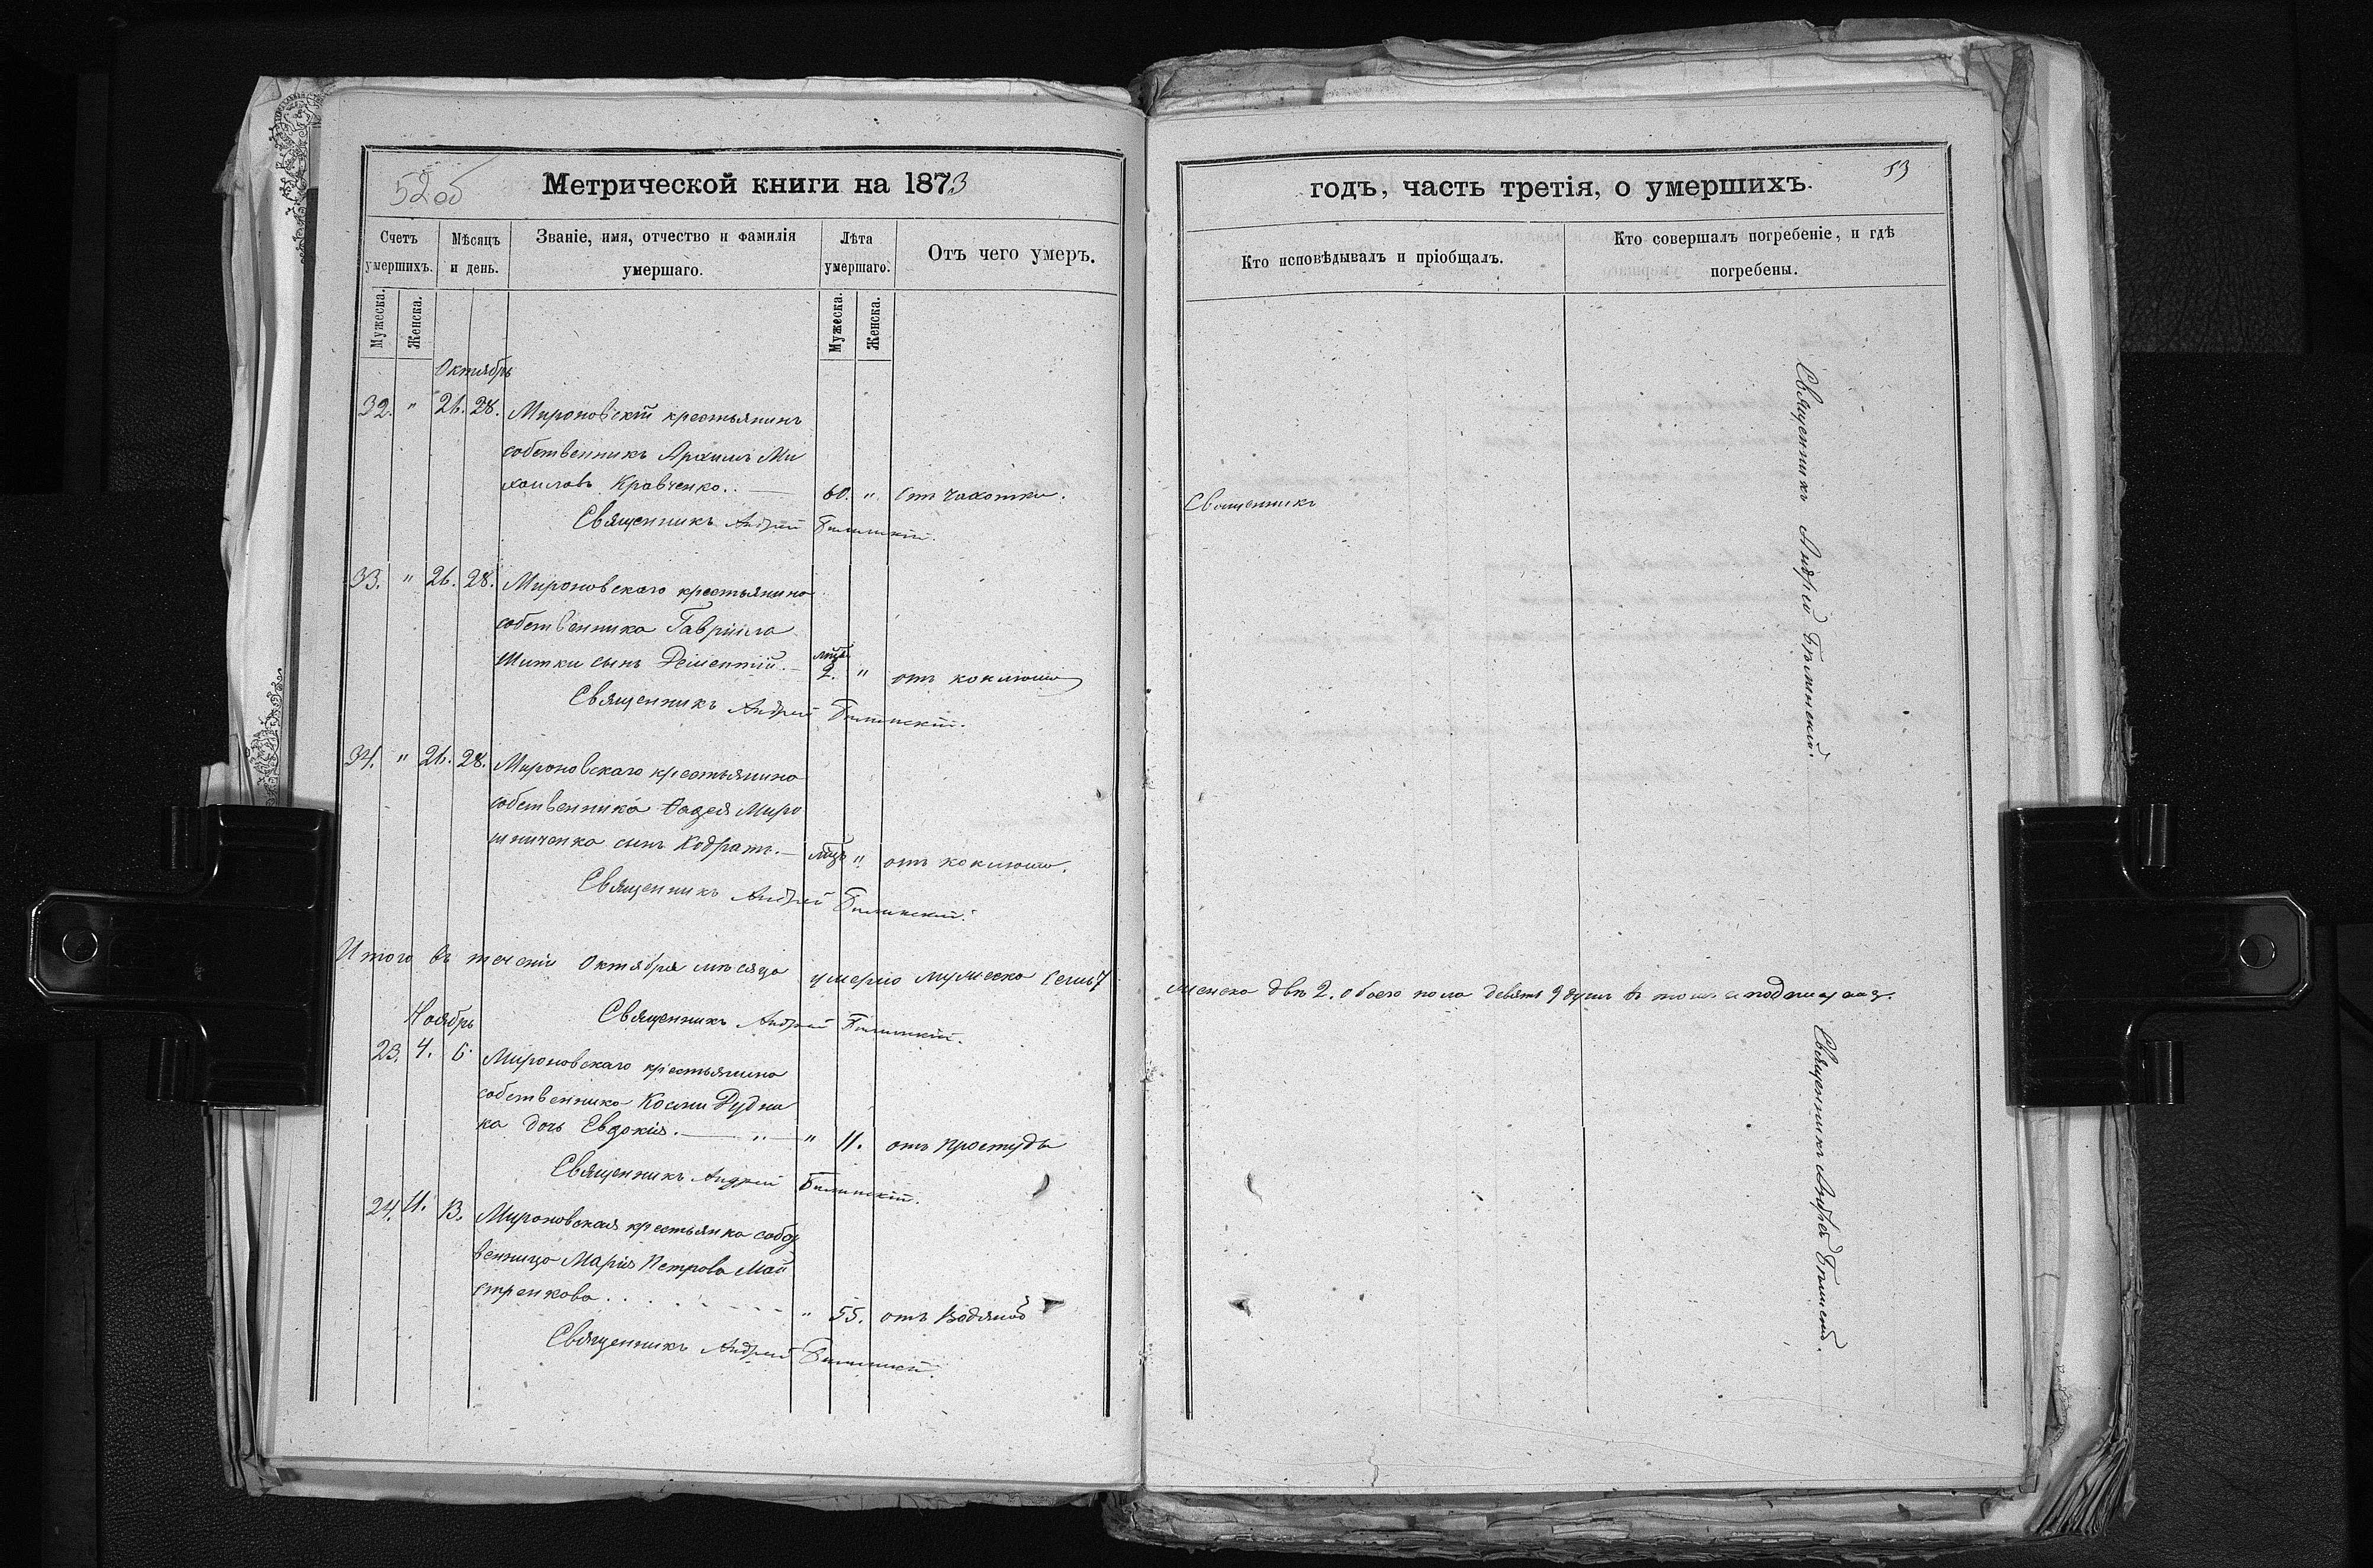 52об
Метрической книги на 1873
Счетъ умершихъ.
Мѣсяцъ и день.
Званіе, имя, отчество и фамилія умершаго.
Лѣта умершаго.
Отъ чего умеръ.
Мужеска.
Женска.
Мужеска.
Женска.
Октябрь
32. " 26. 28. Мироновскій крестьянинъ
собственникъ Архипъ Ми
хаиловъ Кравченко. 60. " Отъ чахотки.
Священникъ Андрей
33. " 26. 28. Мироновскаго крестьянина
собственника Гавріила
Шитки сынъ Дементій. 2. " отъ коклюша
Священникъ Андрей
34. " 26. 28. Мироновскаго крестьянина
собственника Фадея Миро
шниченка сынъ Кодратъ. " отъ коклюша.
Священникъ Андрей
Итого въ теченіи Октября мѣсяца умерло мужеска семь 7
Священникъ Андрей
Ноябрь
23. 4. 6. Мироновскаго крестьянина
собственника Косми Дудни
ка дочь Евдокія. " 11. отъ простуды
Священникъ Андрей
24. 11. 13. Мироновская крестьянка собст
венница Марія Петрова Май
стренкова. " 55. отъ водяной
Священникъ Андрей
53
годъ, часть третія, о умершихъ.
Кто исповѣдывалъ и пріобщалъ.
Кто совершалъ погребеніе, и гдѣ погребены.
Священникъ
Священникъ Андрей
женска двѣ 2. обоего пола девять 9 душъ въ томъ и подписуюсь.
Священникъ Андрей